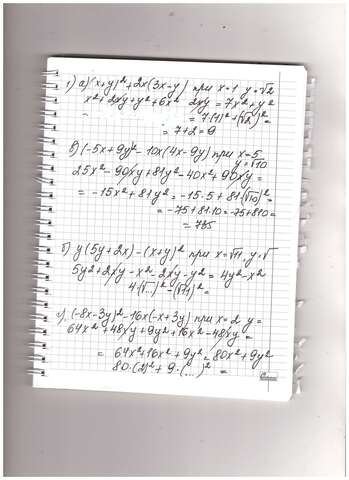 1) а) (x+y)² + 2x(3x-y) при x=1 y=√2
x² + 2xy + y² + 6x² 2xy = 7x² + y²
= 7·(1)² + (√2)² =
= 7+2 = 9
в) (-5x+9y)² - 10x(4x-9y) при x=5
y=√10
25x² - 90xy + 81y² - 40x² + 90xy =
= -15x² + 81y² = -15·5 + 81·(√10)² =
= -75 + 81·10 = -75 + 810 =
= 735
б) y(5y+2x) - (x+y)² при x=√11, y=√
5y² + 2xy - x² - 2xy - y² = 4y² - x²
4(√...)² - (√11)² =
г) (-8x-3y)² - 16x(-x+3y) при x=2 y=
64x² + 48xy + 9y² + 16x² - 48xy =
= 64x² + 16x² + 9y² = 80x² + 9y²
80·(2)² + 9·(...)² =